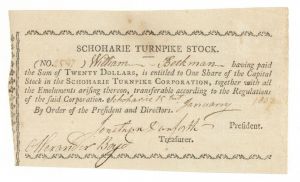 SCHOHARIE TURNPIKE STOCK.
(NO. ) William Beekman having paid
the Sum of TWENTY DOLLARS, is entitled to One Share of the Capital
Stock in the SCHOHARIE TURNPIKE CORPORATION, together with all
the Emoluments arising thereon, transferable according to the Regulations
of the said Corporation. Schoharie 15th January
By Order of the President and Directors.
Jonathan Danforth President.
Alexander Boyd Treasurer.